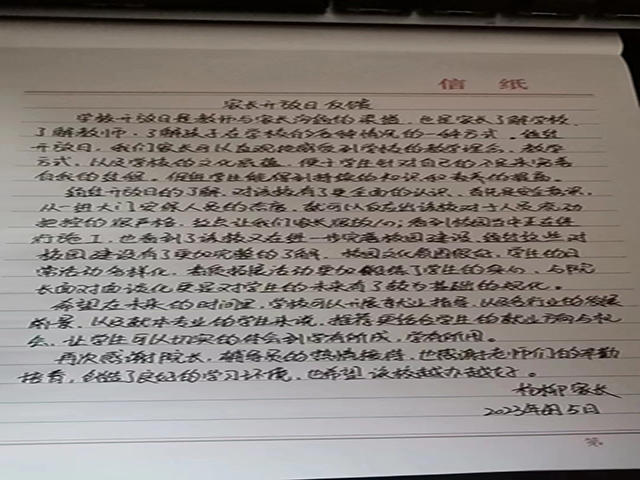 信 纸
家长开放日反馈
学校开放日是教师与家长沟通的渠道，也是家长了解学校、
了解教师、了解孩子在学校的各种情况的一种方式。通过
开放日，我们家长可以直观地感受到学校的教学理念、教学
方式，以及学校的文化底蕴，便于学生针对自己的不足来完善
自我的过程，促进学生能得到持续的知识和素养的提高。
经过开放日的了解，对该校有了更全面的认识，首先是安全意识，
从一进大门安保人员的态度，就可以反应出该校对于人员流动
把控的很严格，这点让我们家长很放心；看到校园当中正在进
行施工，也看到了该校又在进一步完善校园建设，经过这些对
校园建设有了更加完整的了解，校园文化氛围很浓，学生的日
常活动多样化，素质拓展活动更加锻炼了学生的身心，与院
长面对面谈化更是对学生的未来有了较为基础的规化。
希望在未来的时间里，学校可以开展有就业指导，以及各行业的发展
前景，以及就本专业的学生来说，推荐更适合学生的就业方向与机
会，让学生可以切实的体会到学有所成，学有所用。
再次感谢院长，辅导员的热情接待，也感谢老师们的辛勤
培育，创造了良好的学习环境，也希望该校越办越好。
杨柳 家长
2023年 月5日
第